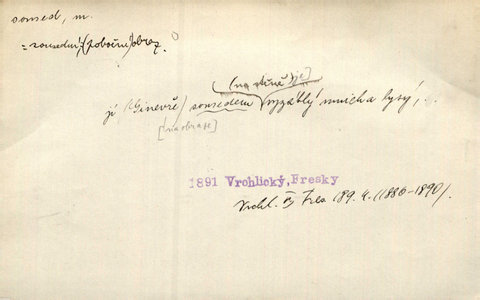 soused, m.
= sousední, (pobočné) obraz
(na stěně) je]
jí (Ginevře) sousedem vyzáblý mnich a lysý, ..
[na obraze]
1891 Vrchlický, Fresky
Vrchl. 189. 4. (1886-1890).